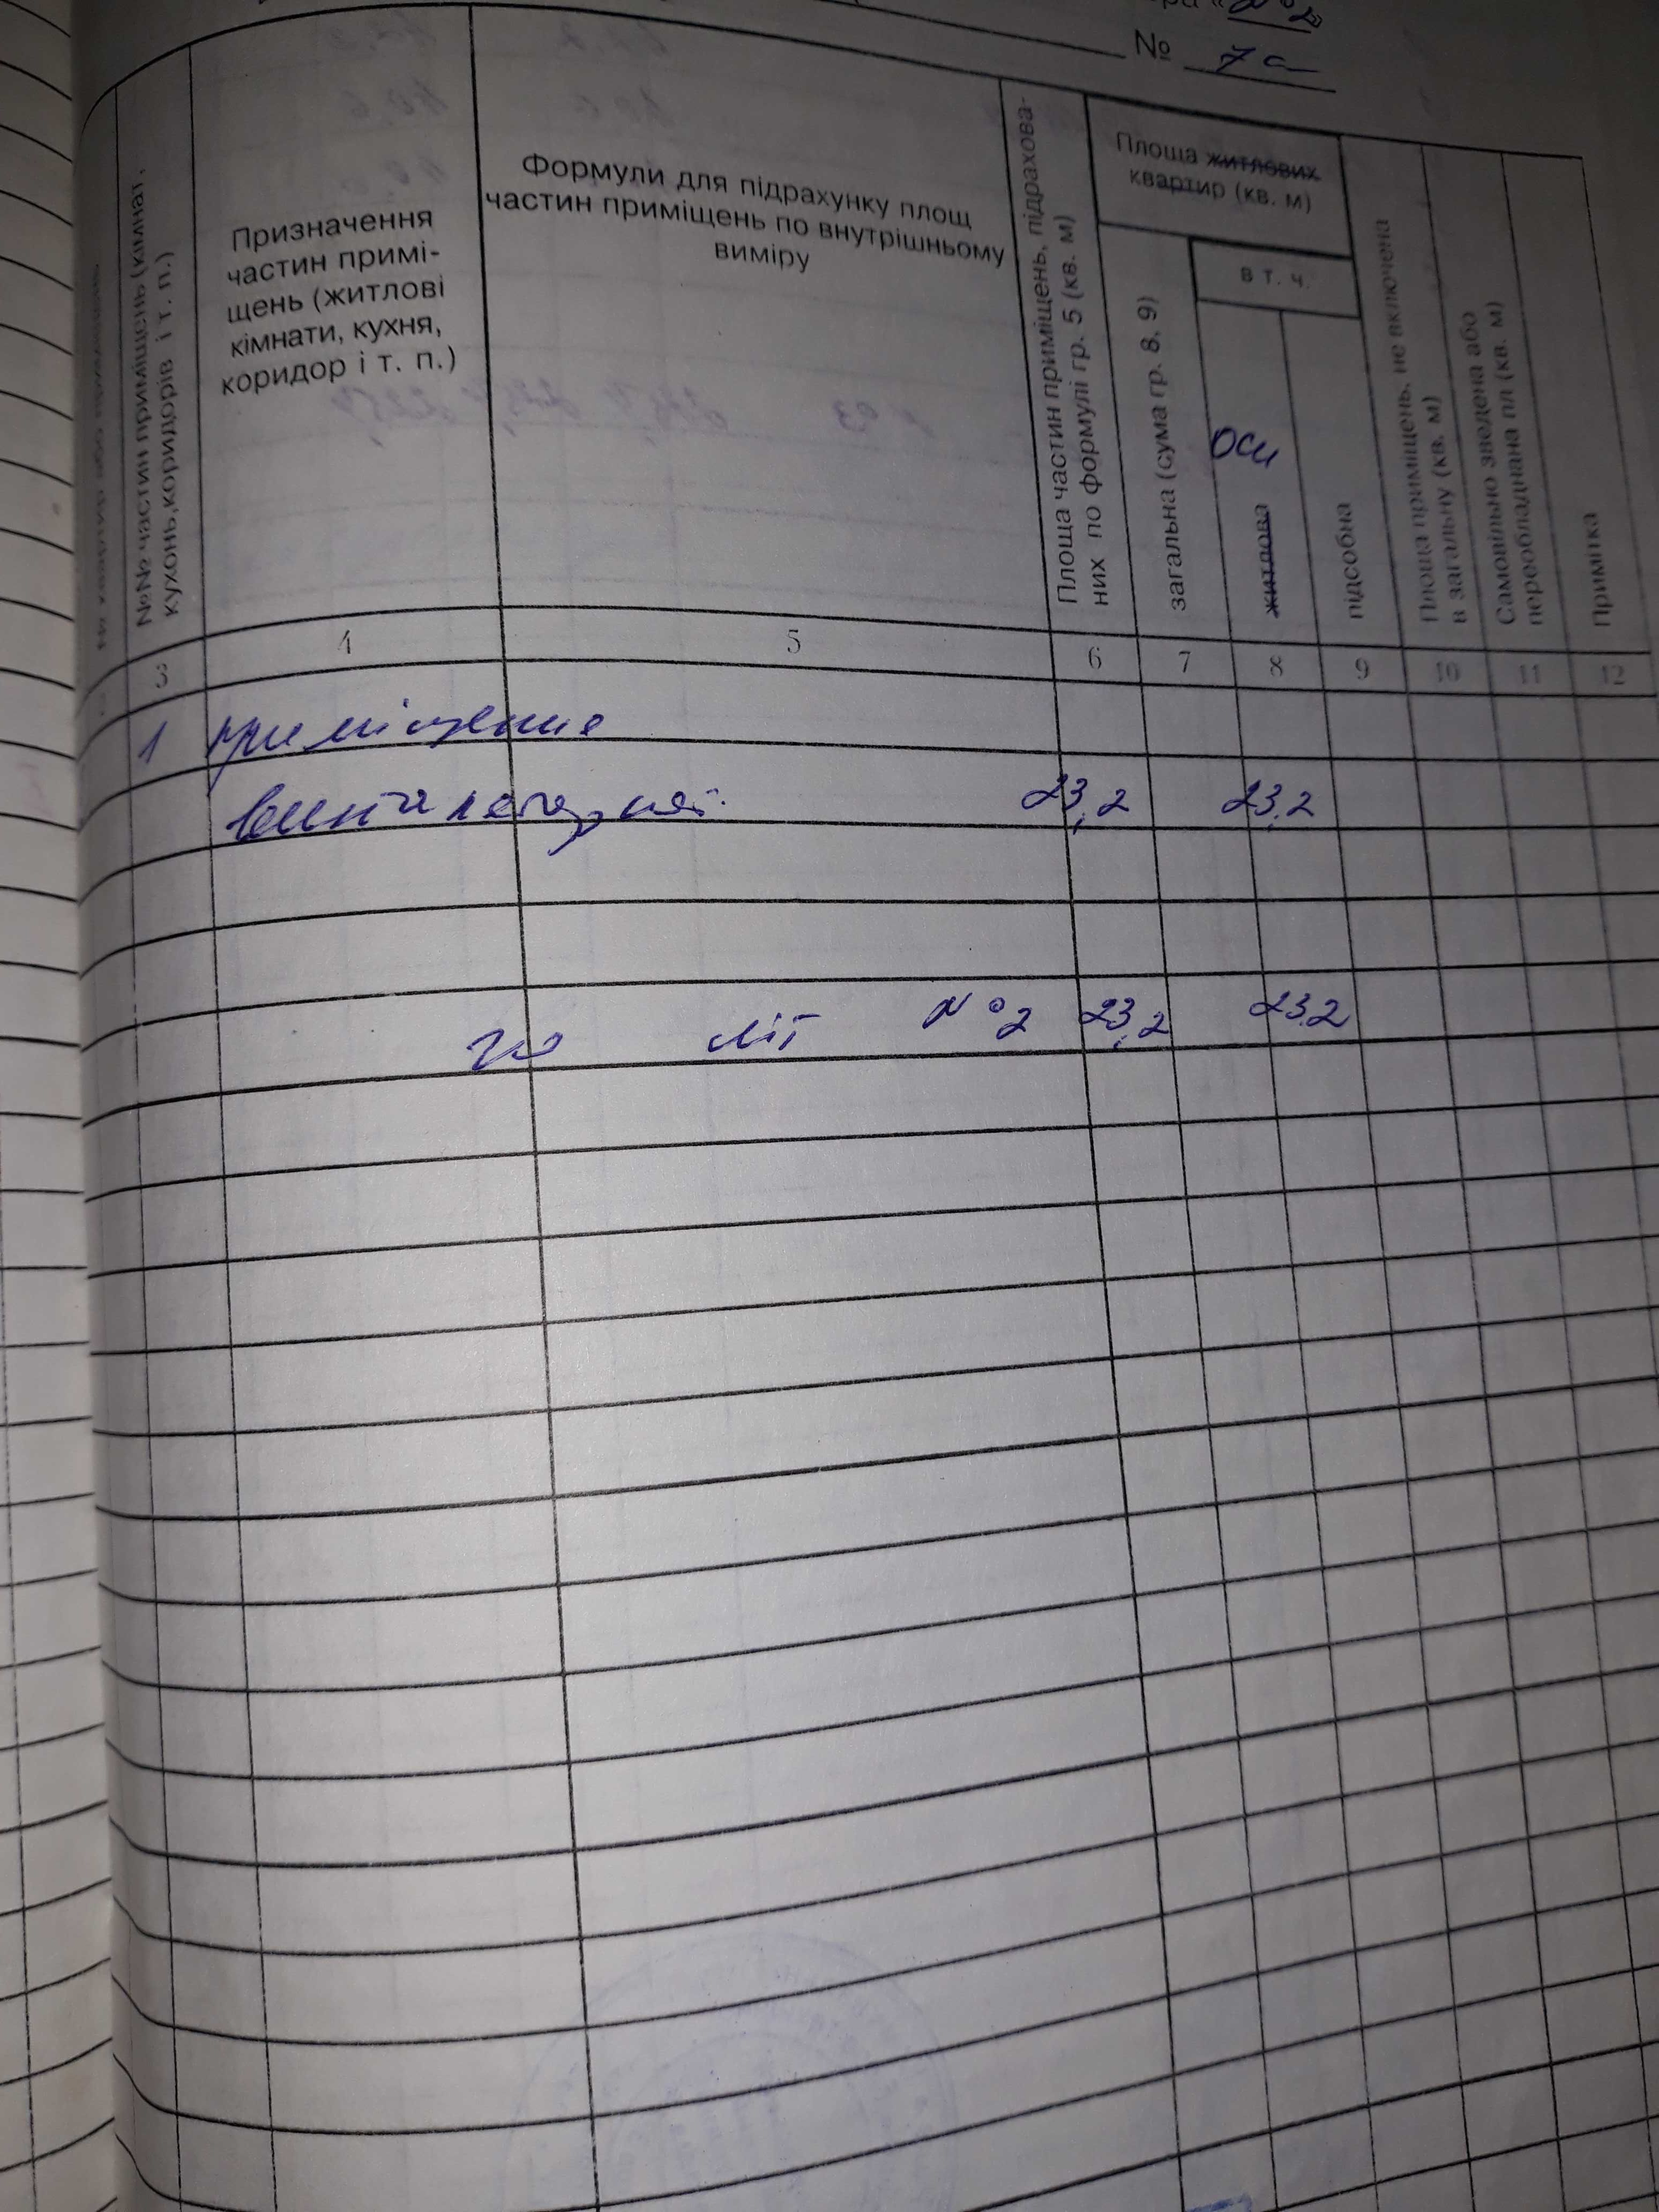 №2»
№ 7а
№№ частин приміщень (кімнат,
кухонь, коридорів і т. п.)
Призначення
частин примі-
щень (житлові
кімнати, кухня,
коридор і т. п.)
Формули для підрахунку площ
частин приміщень по внутрішньому
виміру
Площа частин приміщень, підрахова-
них по формулі гр. 5 (кв. м)
Площа житлових
квартир (кв. м)
загальна (сума гр. 8, 9)
в т. ч.
осн
житлова
підсобна
Площа приміщень, не включена
в загальну (кв. м)
Самовільно зведена або
переобладнана пл (кв. м)
Примітка
3 4 5 6 7 8 9 10 11 12
1 приміщення
23,2 23,2
по літ №2 23,2 23.2